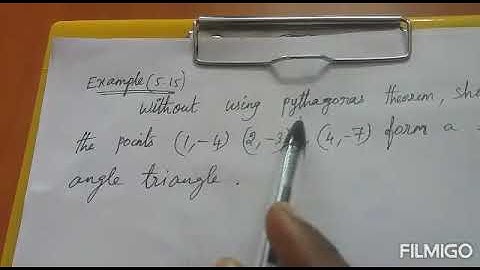 Example (5.15)
without using pythagoras theorem,
the points (1,-4) (2,-3) (4,-7) form a
angle triangle.
FILMIGO